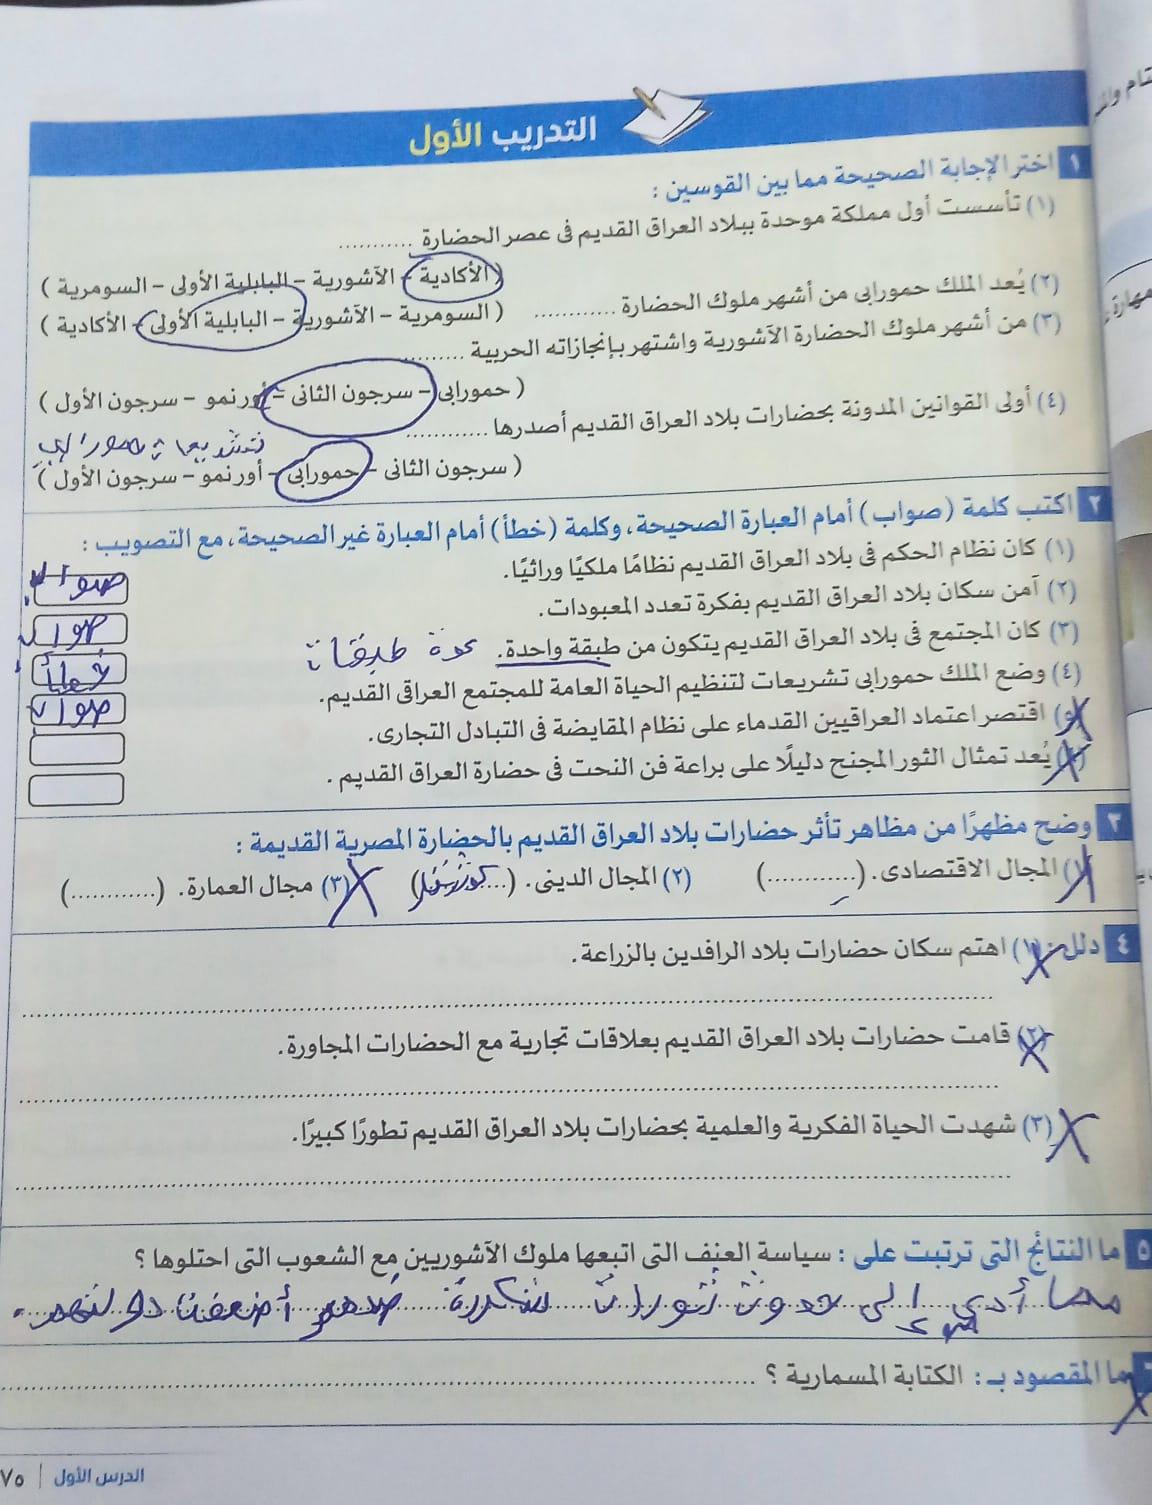 التدريب الأول
١ اختر الإجابة الصحيحة مما بين القوسين :
(١) تأسست أول مملكة موحدة ببلاد العراق القديم فى عصر الحضارة ............
( الأكادية – الآشورية – البابلية الأولى – السومرية )
(٢) يُعد الملك حمورابى من أشهر ملوك الحضارة ............ ( السومرية – الآشورية – البابلية الأولى – الأكادية )
(٣) من أشهر ملوك الحضارة الآشورية واشتهر بإنجازاته الحربية ............
( حمورابى – سرجون الثانى – أورنمو – سرجون الأول )
(٤) أولى القوانين المدونة بحضارات بلاد العراق القديم أصدرها ............
تشريعات حمورابي
( سرجون الثانى – حمورابى – أورنمو – سرجون الأول )
٢ اكتب كلمة (صواب) أمام العبارة الصحيحة، وكلمة (خطأ) أمام العبارة غير الصحيحة، مع التصويب :
(١) كان نظام الحكم فى بلاد العراق القديم نظامًا ملكيًا وراثيًا. صواب
(٢) آمن سكان بلاد العراق القديم بفكرة تعدد المعبودات. صواب
(٣) كان المجتمع فى بلاد العراق القديم يتكون من طبقة واحدة. عدة طبقات خطأ
(٤) وضع الملك حمورابى تشريعات لتنظيم الحياة العامة للمجتمع العراقى القديم. صواب
(٥) اقتصر اعتماد العراقيين القدماء على نظام المقايضة فى التبادل التجارى.
(٦) يُعد تمثال الثور المجنح دليلًا على براعة فن النحت فى حضارة العراق القديم .
٣ وضح مظهرًا من مظاهر تأثر حضارات بلاد العراق القديم بالحضارة المصرية القديمة :
(١) المجال الاقتصادى. (............) (٢) المجال الدينى. (............) (٣) مجال العمارة. (............)
٤ دلل : (١) اهتم سكان حضارات بلاد الرافدين بالزراعة.
(٢) قامت حضارات بلاد العراق القديم بعلاقات تجارية مع الحضارات المجاورة.
(٣) شهدت الحياة الفكرية والعلمية بحضارات بلاد العراق القديم تطورًا كبيرًا.
٥ ما النتائج التى ترتبت على : سياسة العنف التى اتبعها ملوك الآشوريين مع الشعوب التى احتلوها ؟
مما أدى إلى حدوث ثورات متكررة ضدهم أضعفت دولتهم
٦ ما المقصود بـ : الكتابة المسمارية ؟
الدرس الأول | ٧٥